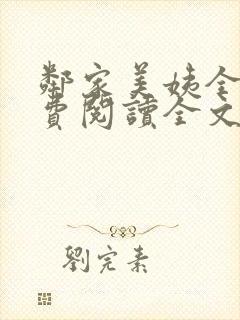 鄰家美姨全
費閱讀全文
劉完素